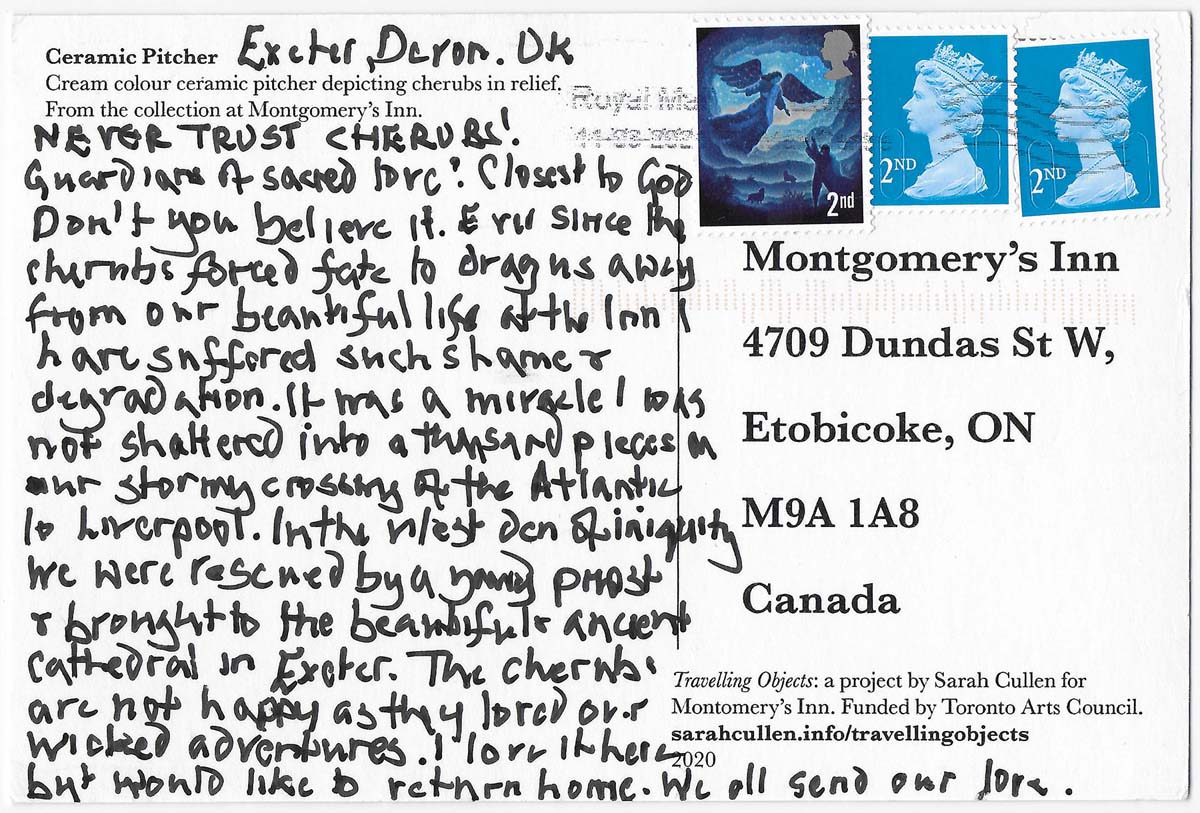 Ceramic Pitcher
Exeter, Devon. UK
Cream colour ceramic pitcher depicting cherubs in relief.
From the collection at Montgomery's Inn.
NEVER TRUST CHERUBS!
Guardians of sacred love? Closest to God
Don't you believe it. Ever since the
cherubs forced fate to drag us away
from our beautiful life at the Inn I
have suffered such shame &
degradation. It was a miracle I was
not shattered into a thousand pieces on
our stormy crossing of the Atlantic
to Liverpool. In the vilest den of iniquity
we were rescued by a young priest
& brought to the beautiful & ancient
cathedral in Exeter. The cherubs
are not happy as they loved our
wicked adventures. I love it here
but would like to return home. We all send our love.
Royal Ma
2nd
2ND
2ND
Montgomery's Inn
4709 Dundas St W,
Etobicoke, ON
M9A 1A8
Canada
Travelling Objects: a project by Sarah Cullen for
Montomery's Inn. Funded by Toronto Arts Council.
sarahcullen.info/travellingobjects
2020